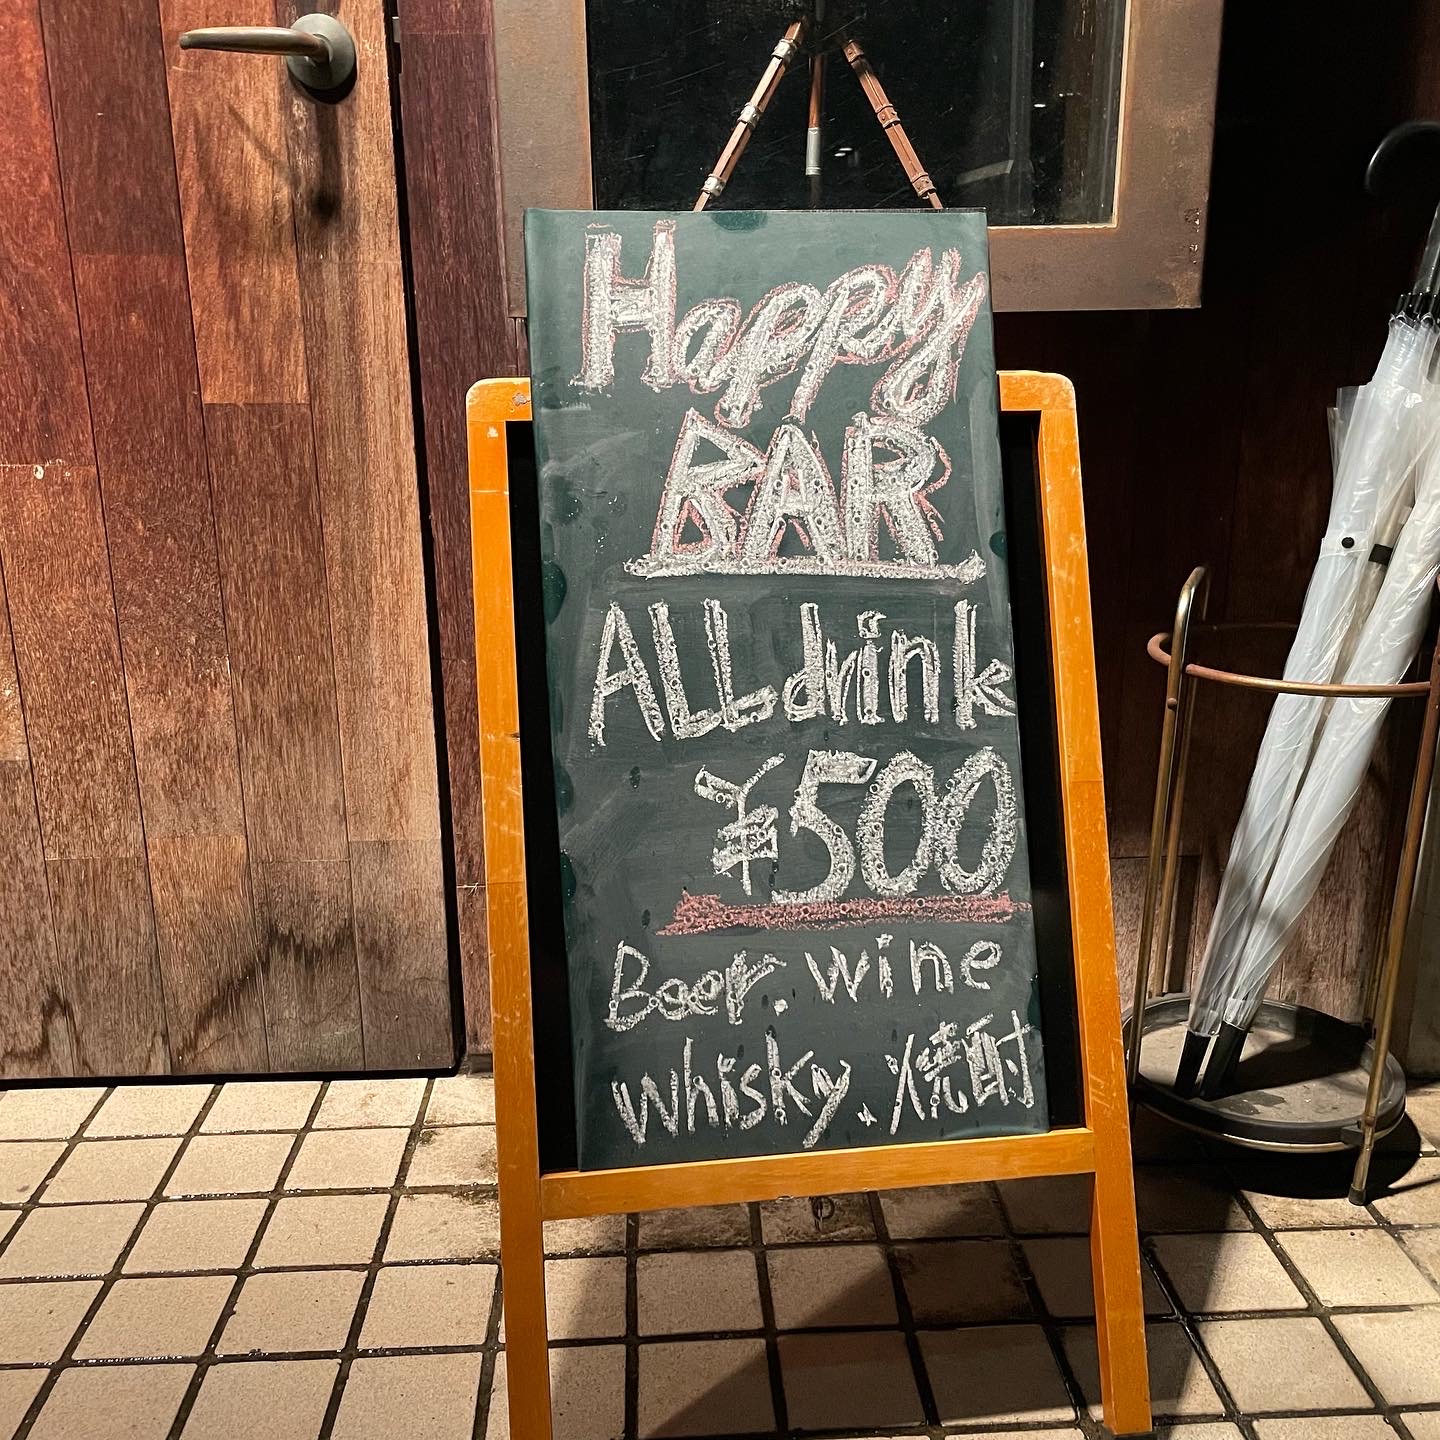 Happy
BAR
ALL drink
¥500
Beer. wine
whisky. 焼酎